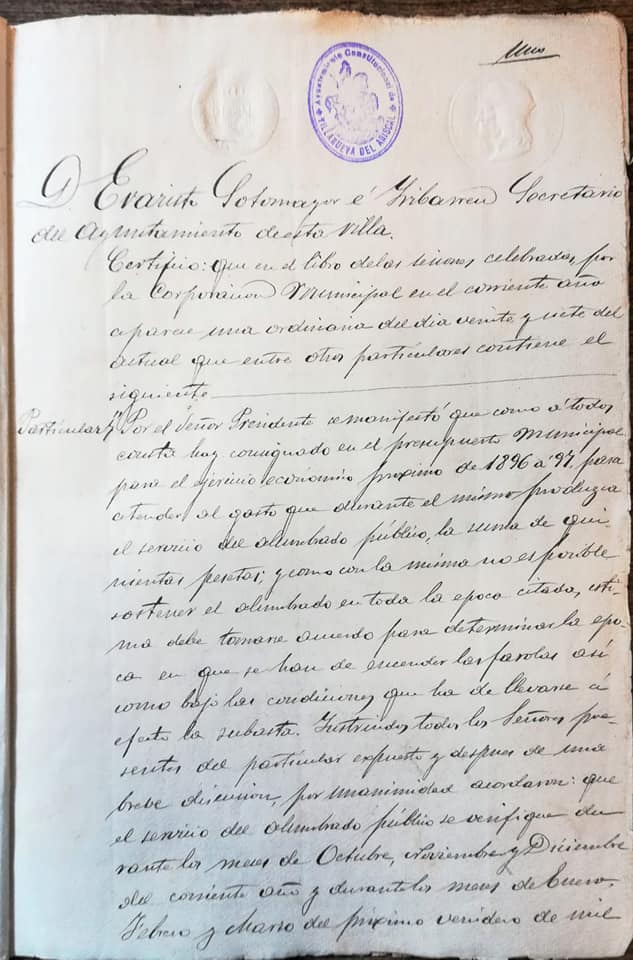 Uno
Ayuntamiento Constitucional de
VILLANUEVA DEL ARISCAL
D. Evaristo Sotomayor é Iribarren Secretario
del Ayuntamiento de esta Villa.
Certifico: que en el libro de las sesiones celebradas, por
la Corporacion Municipal en el corriente año
aparece una ordinaria del dia veinte y siete del
actual que entre otros particulares contiene el
siguiente
Particular Por el Señor Presidente se manifestó que como á todos
consta hay consignado en el presupuesto Municipal
para el ejercicio económico proximo de 1896 á 97, para
atender al gasto que durante el mismo produzca
el servicio del alumbrado público, la suma de qui
nientas pesetas; y como con la misma no es posible
sostener el alumbrado en toda la epoca citada, esti
ma debe tomarse acuerdo para determinar la epo-
ca en que se han de encender las farolas así
como bajo las condiciones que ha de llevarse á
efecto la subasta. Instruidos todos los Señores pre-
sentes del particular expuesto y despues de una
breve discusion, por unanimidad acordaron: que
el servicio del alumbrado público se verifique du
rante los meses de Octubre, Noviembre y Diciembre
del corriente año y durante los meses de Enero,
Febrero y Marzo del próximo venidero de mil